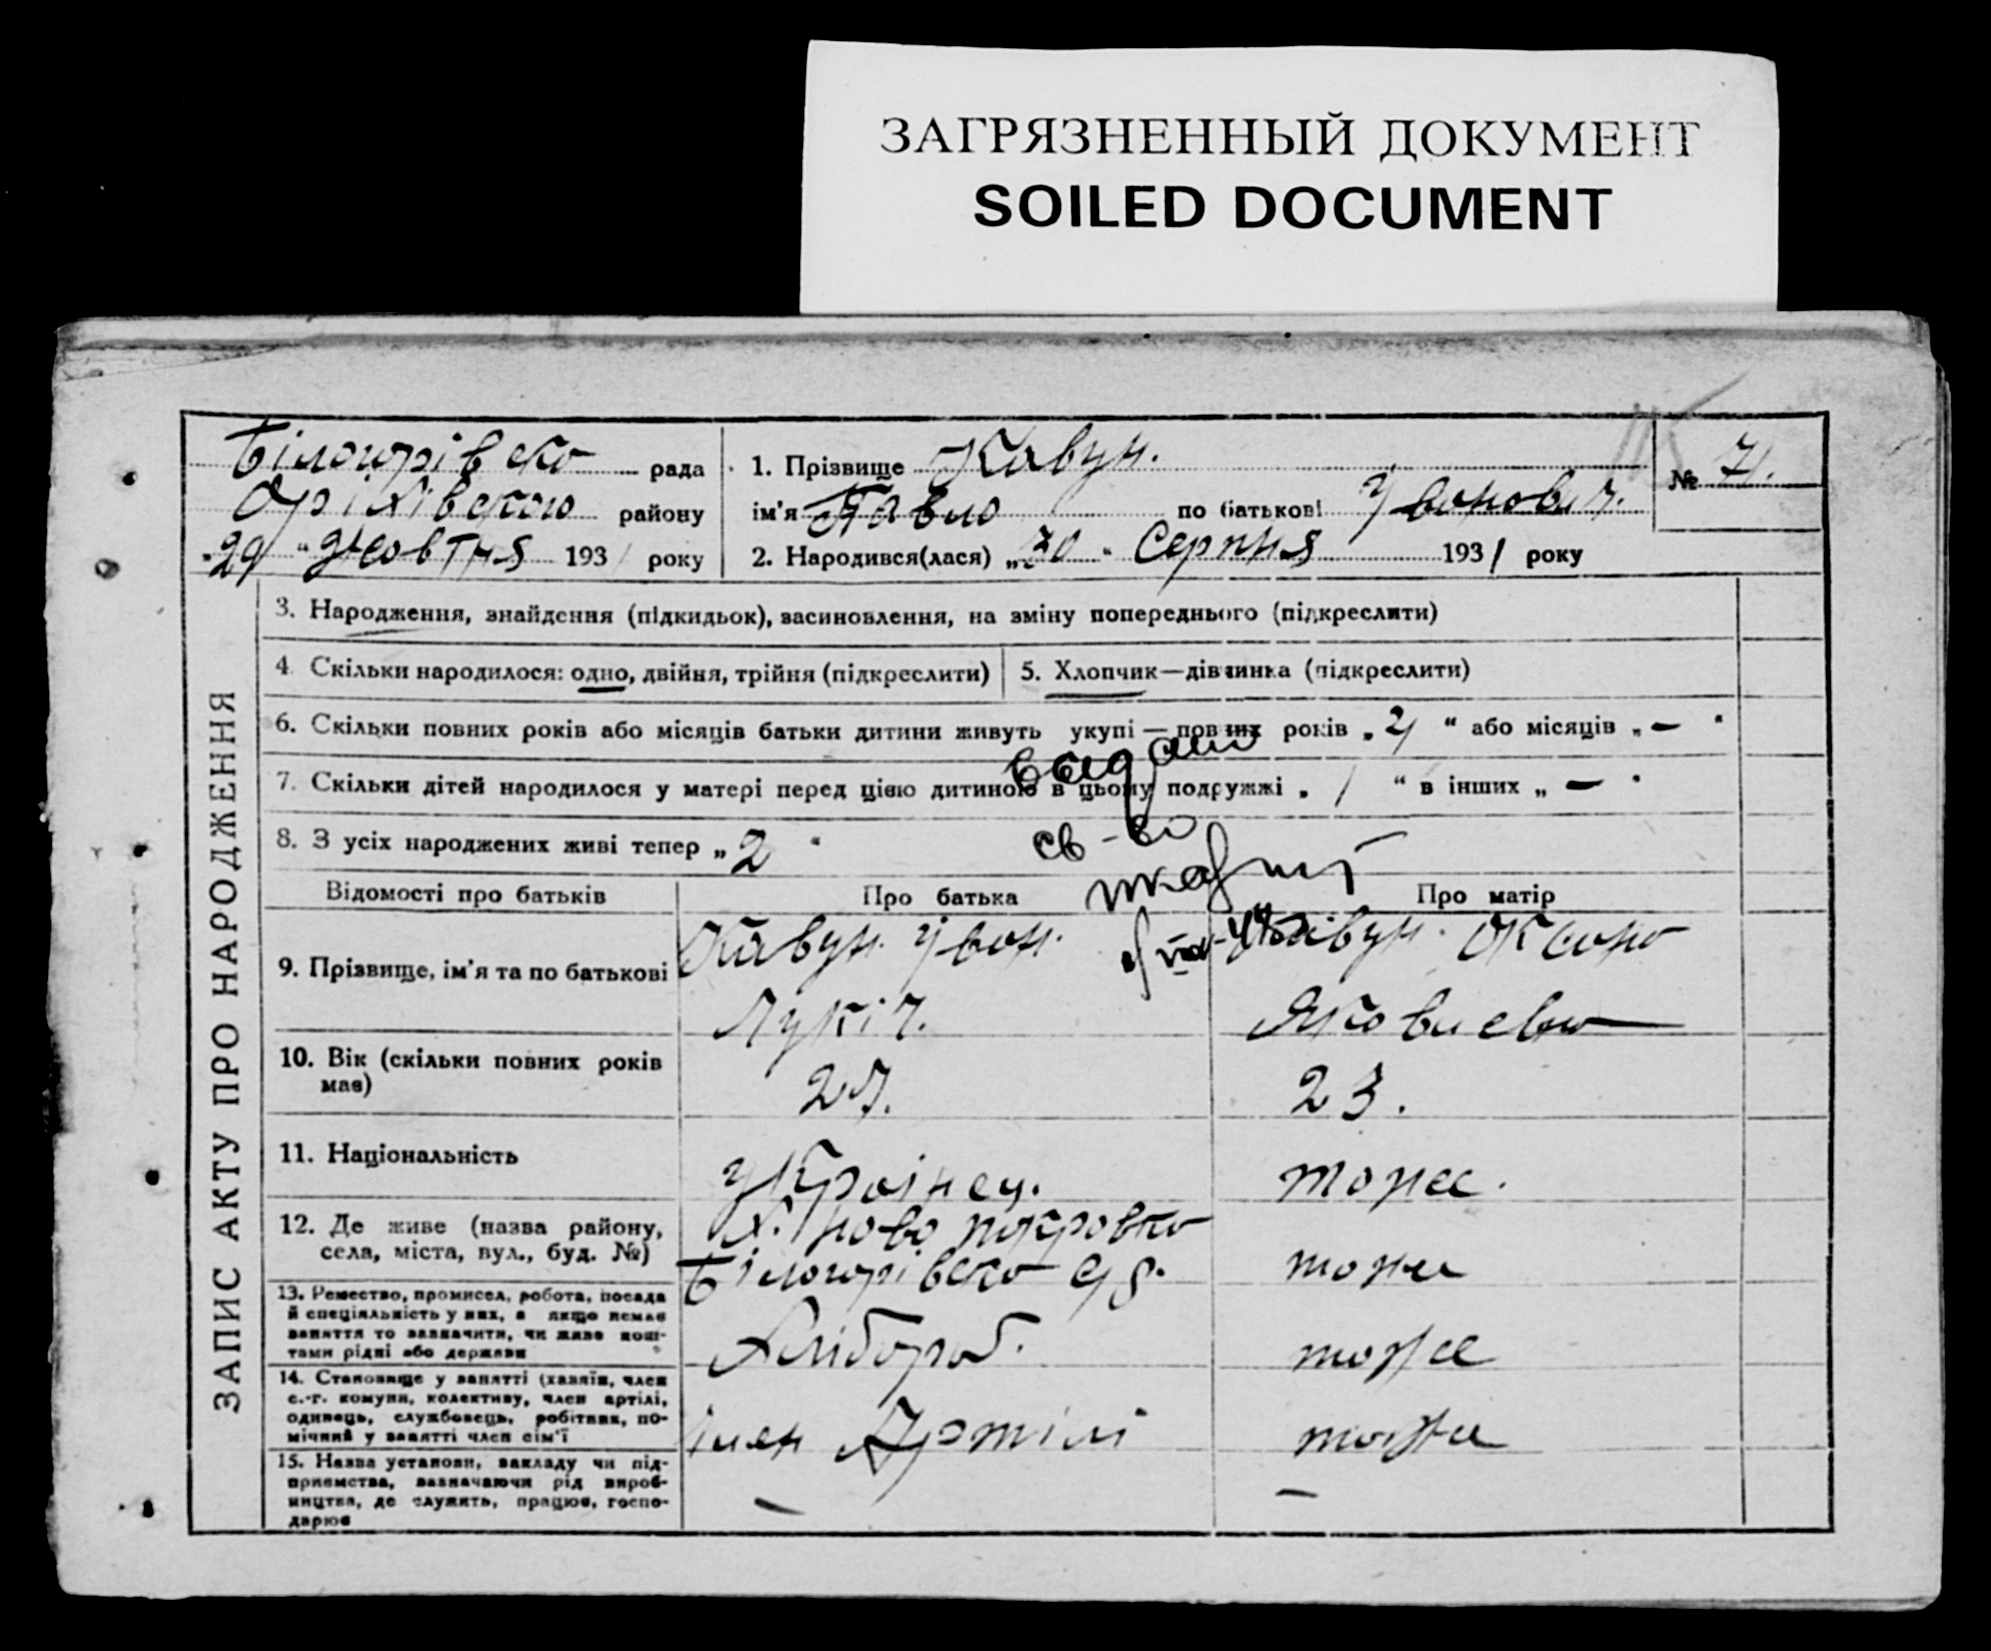 ЗАГРЯЗНЕННЫЙ ДОКУМЕНТ
SOILED DOCUMENT
Білогорівсько рада
Оріхівського району
"29" Жовтня 1931 року
1. Прізвище Кавун.
ім'я Павло по батькові Іванович.
2. Народився(лася) „30" Серпня 1931 року
№ 71.
ЗАПИС АКТУ ПРО НАРОДЖЕННЯ
3. Народження, знайдення (підкидьок), засиновлення, на зміну попереднього (підкреслити)
4. Скільки народилося: одно, двійня, трійня (підкреслити)
5. Хлопчик—дівчинка (підкреслити)
6. Скільки повних років або місяців батьки дитини живуть укупі — повних років „ " або місяців „ — "
7. Скільки дітей народилося у матері перед цією дитиною в цьому подружжі „ 1 " в інших „ — "
8. З усіх народжених живі тепер „ 2 "
св-во
Відомості про батьків
Про батька
Про матір
9. Прізвище, ім'я та по батькові
Кавун Іван.
Лукіч.
Кавун. Оксана
Яковлевна
10. Вік (скільки повних років
має)
27.
23.
11. Національність
Українец.
тоже.
12. Де живе (назва району,
села, міста, вул., буд. №)
Х. Ново покровка
Білогорівсько
тоже
13. Ремество, промисел, робота, посада
й спеціяльність у них, а якщо немає
заняття то зазначити, чи живе кош-
тами рідні або держави
Хлібороб.
тоже
14. Становище у занятті (хазяїн, член
с.-г. комуни, колективу, член артілі,
одинець, службовець, робітник, по-
мічний у занятті член сім'ї
член Артілі
тоже
15. Назва установи, закладу чи під-
приємства, зазначаючи рід вироб-
ництва, де служить, працює, госпо-
дарює
—
—